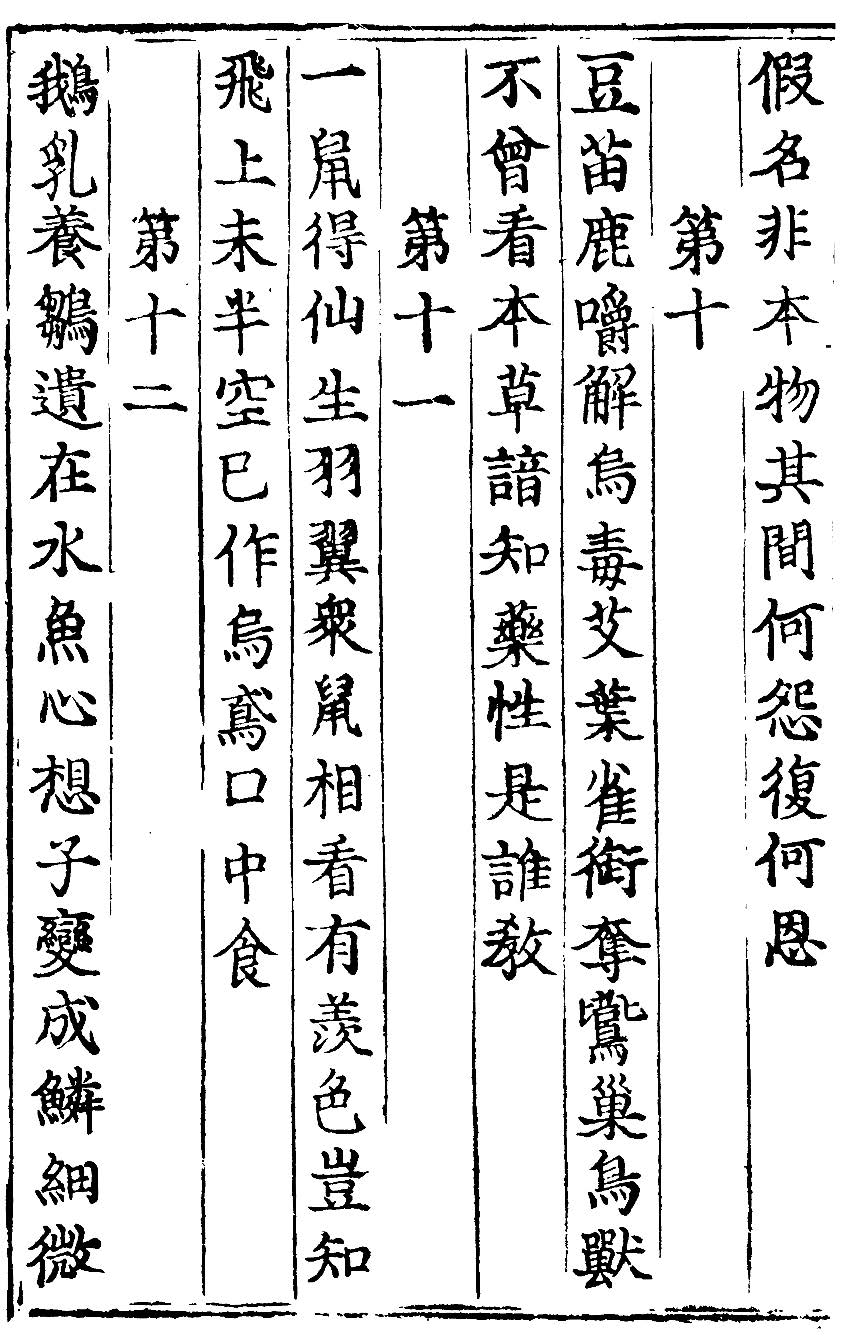 假名非本物其間何怨復何恩
第十
豆苗鹿嚼解烏毒艾葉雀銜奪鷰巢鳥獸
不曾看本草諳知藥性是誰教
第十一
一鼠得仙生羽翼衆鼠相看有羨色豈知
飛上未半空已作烏鳶口中食
第十二
鵝乳養鶵遺在水魚心想子變成鱗細微